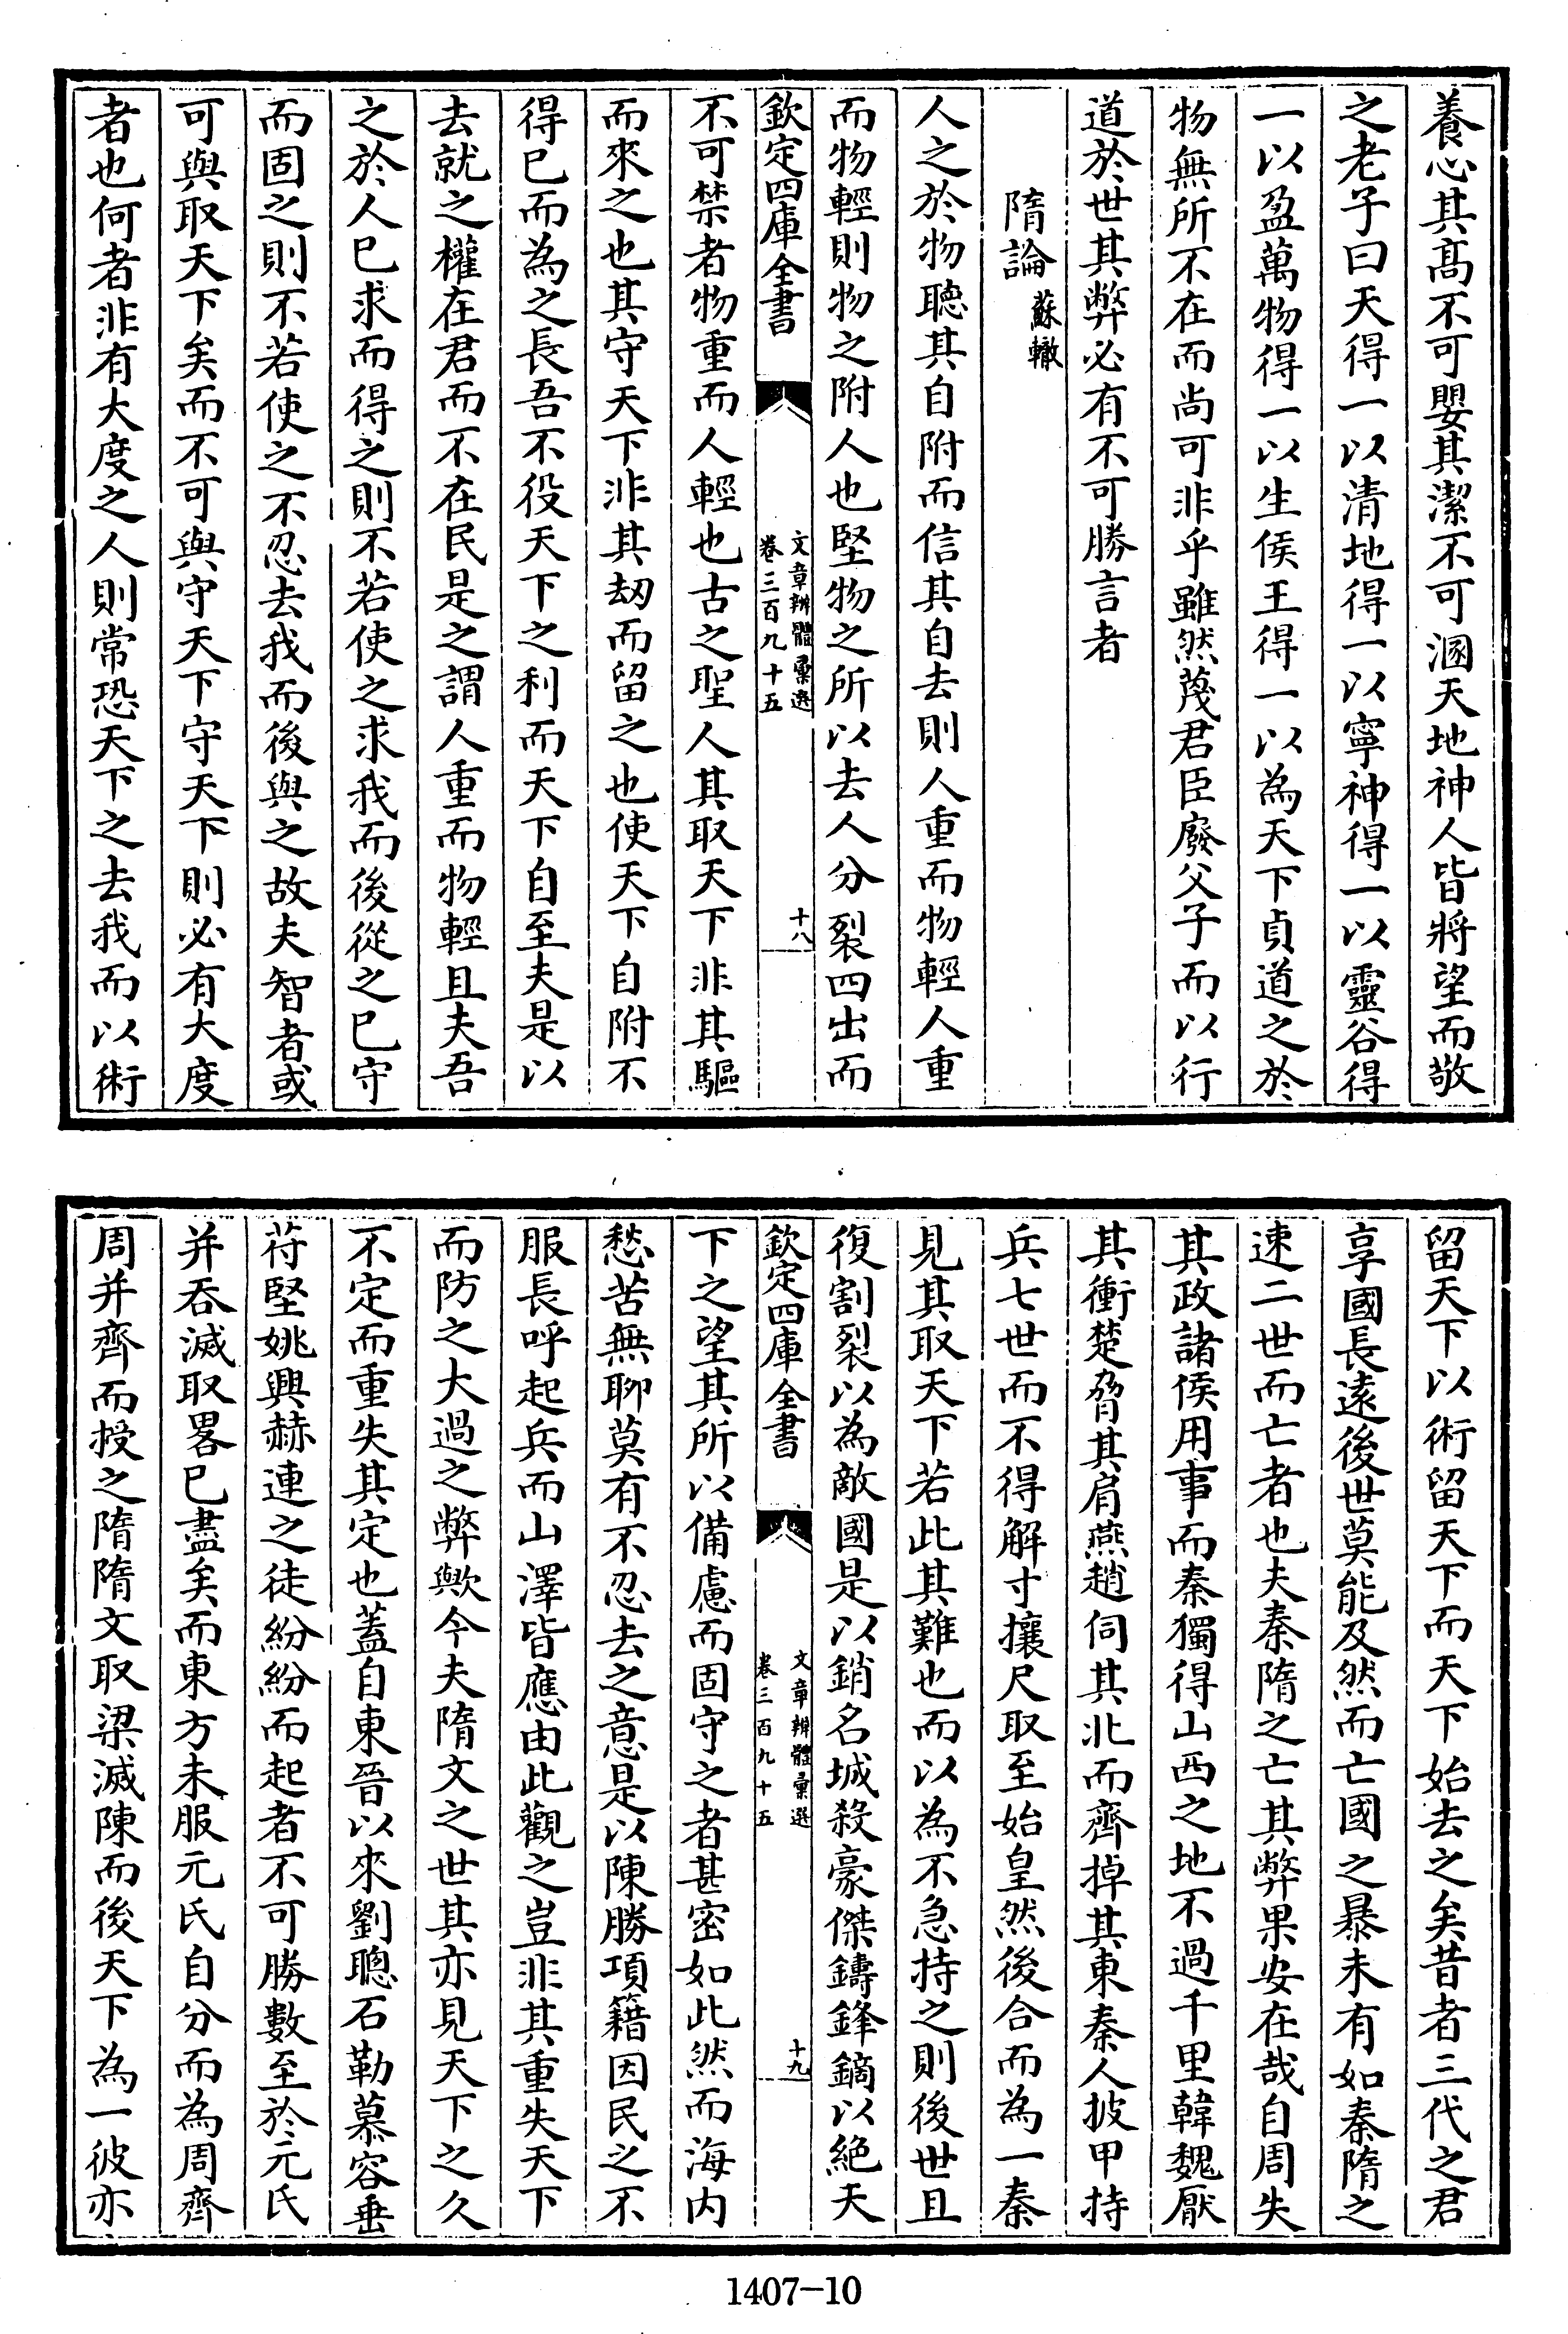 養心其髙不可嬰其潔不可溷天地神人皆將望而敬
之老子曰天得一以清地得一以寧神得一以靈谷得
一以盈萬物得一以生侯王得一以為天下貞道之於
物無所不在而尚可非乎雖然蔑君臣廢父子而以行
道於世其弊必有不可勝言者
隋論蘇轍
人之於物聽其自附而信其自去則人重而物輕人重
而物輕則物之附人也堅物之所以去人分裂四出而
欽定四庫全書
文章辨體彙選
卷三百九十五
十八
不可禁者物重而人輕也古之聖人其取天下非其驅
而來之也其守天下非其刼而留之也使天下自附不
得已而為之長吾不役天下之利而天下自至夫是以
去就之權在君而不在民是之謂人重而物輕且夫吾
之於人已求而得之則不若使之求我而後從之已守
而固之則不若使之不忍去我而後與之故夫智者或
可與取天下矣而不可與守天下守天下則必有大度
者也何者非有大度之人則常恐天下之去我而以術
留天下以術留天下而天下始去之矣昔者三代之君
享國長遠後世莫能及然而亡國之暴未有如秦隋之
速二世而亡者也夫秦隋之亡其弊果安在哉自周失
其政諸侯用事而秦獨得山西之地不過千里韓魏厭
其衝楚脅其肩燕趙伺其北而齊掉其東秦人披甲持
兵七世而不得解寸攘尺取至始皇然後合而為一秦
見其取天下若此其難也而以為不急持之則後世且
復割裂以為敵國是以銷名城殺豪傑鑄鋒鏑以絶天
欽定四庫全書
文章辨體彙選
卷三百九十五
十九
下之望其所以備慮而固守之者甚密如此然而海内
愁苦無聊莫有不忍去之意是以陳勝項籍因民之不
服長呼起兵而山澤皆應由此觀之豈非其重失天下
而防之大過之弊歟今夫隋文之世其亦見天下之久
不定而重失其定也蓋自東晉以來劉聰石勒慕容垂
苻堅姚興赫連之徒紛紛而起者不可勝數至於元氏
并吞滅取畧已盡矣而東方未服元氏自分而為周齊
周并齊而授之隋隋文取梁滅陳而後天下為一彼亦
1407-10